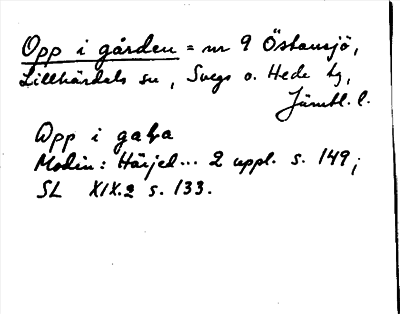 Opp i gården = nr 9 Östansjö,
Lillhärdals sn, Svegs o. Hede tg,
Jämtl. l.
Opp i gaɫa
Modin: Härjed... 2 uppl. s. 149;
SL XIX.2 s. 133.